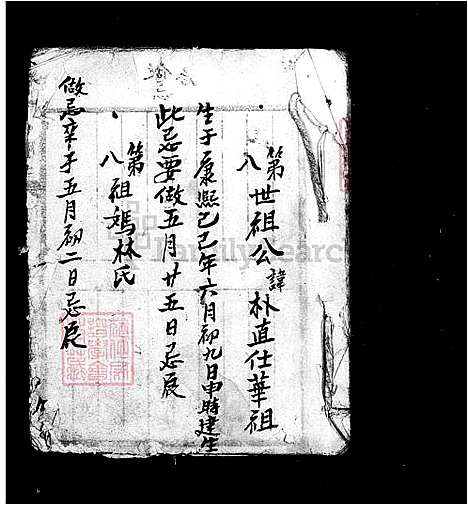 第八世祖公諱朴直仕華祖
生于康熙己巳年六月初九日申時建生
此忌要做五月廿五日忌辰
第八祖媽林氏
做忌辛于五月初二日忌辰
FamilySearch